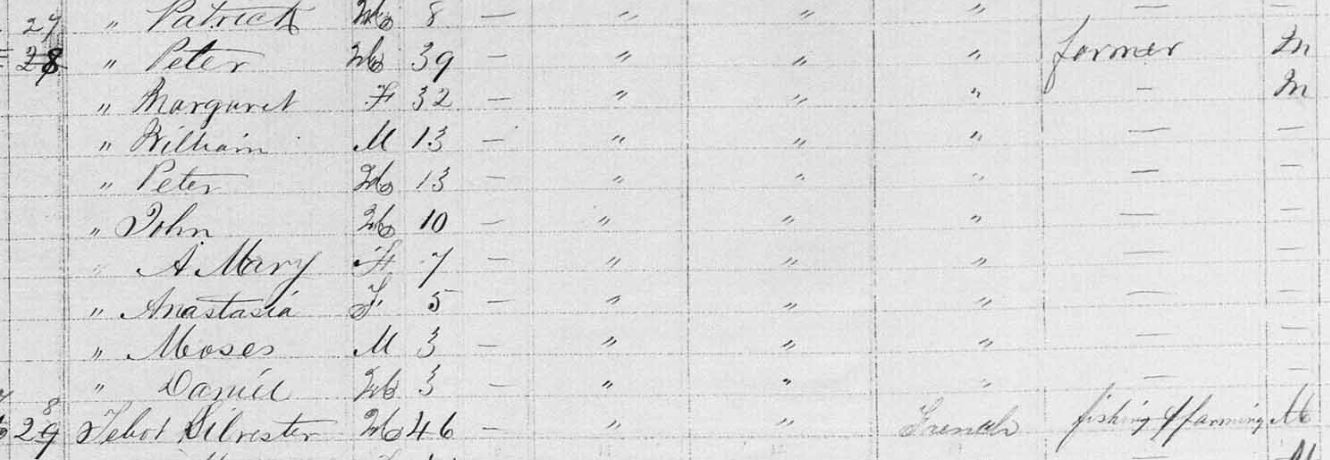 27 " Patrick M 8 — " " " — —
28 " Peter M 39 — " " " farmer M
" Margaret F 32 — " " " — M
" William M 13 — " " " — —
" Peter M 13 — " " " — —
" John M 10 — " " " — —
" A Mary F 7 — " " " — —
" Anastasia F 5 — " " " — —
" Moses M 3 — " " " — —
" Daniel M 3 — " " " — —
29 8 Tebot Silvester M 46 — " " French fishing & farming M